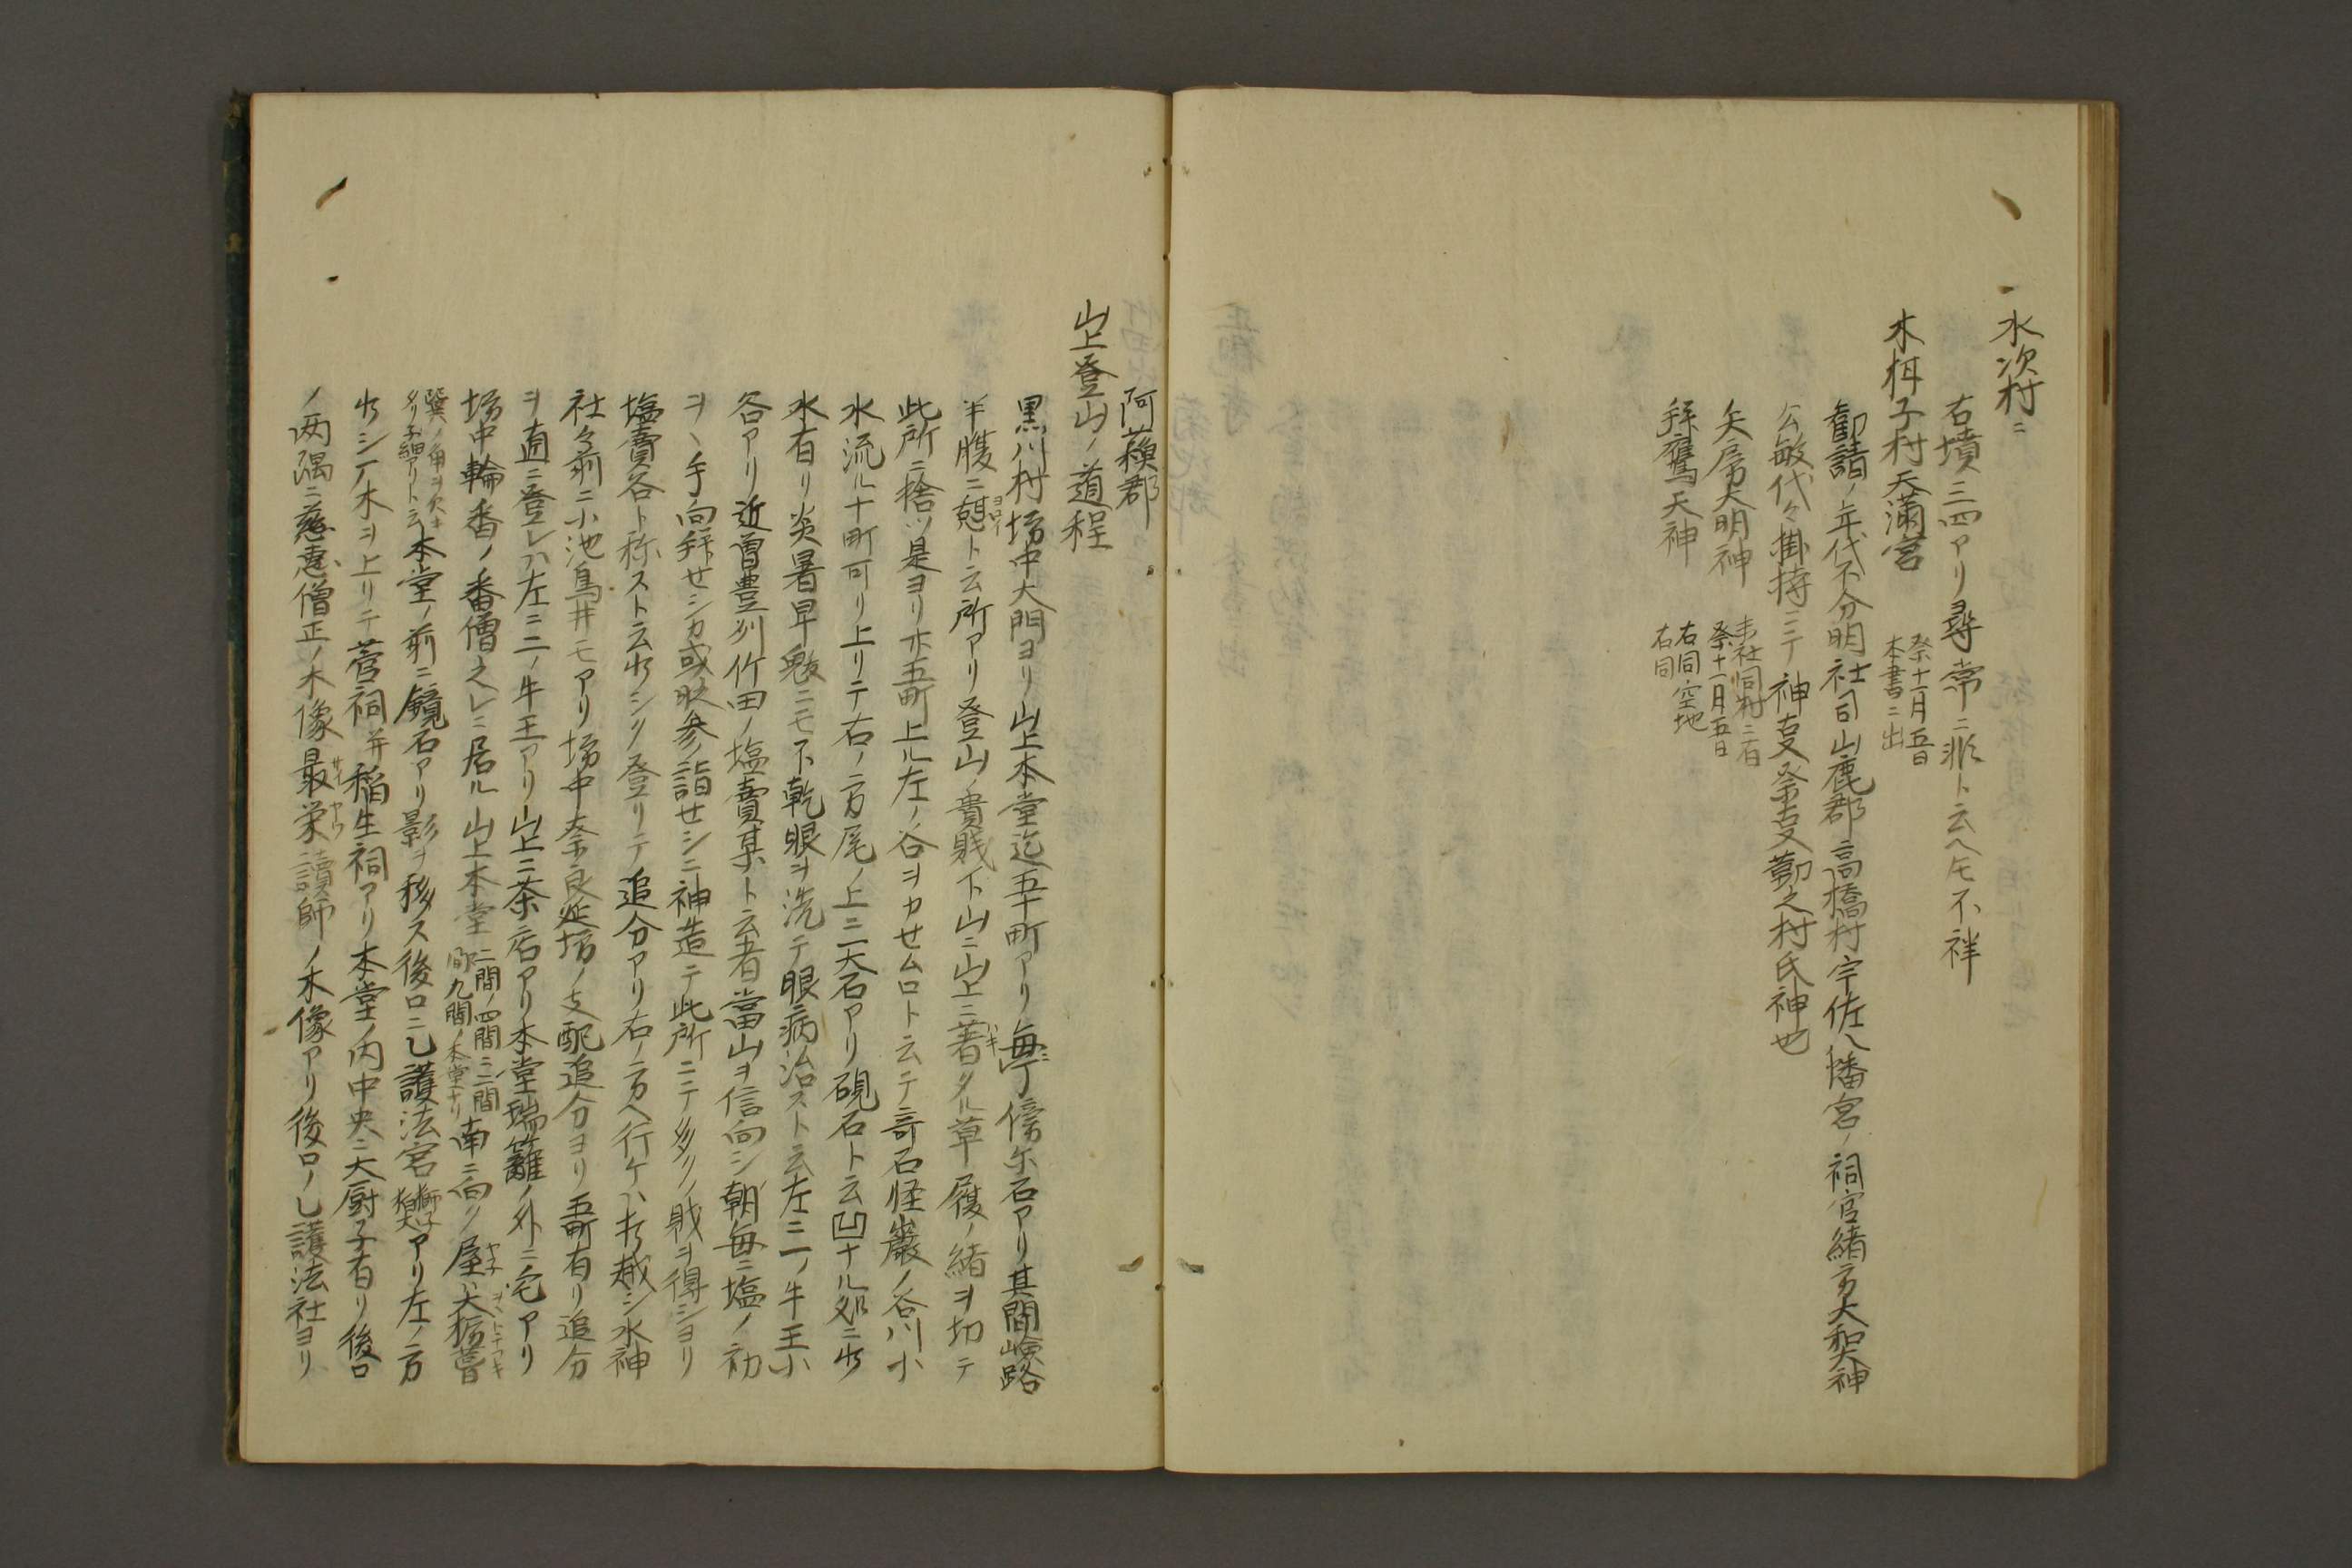 水次村ニ
右墳三四アリ尋常ニ非ト云ヘ𪜈不祥
木栮子村天満宮 祭十一月五日 本書ニ出
勧請ノ年代不分明社司山鹿郡高橋村宇佐八幡宮ノ祠官緒方大和大神
公敏代々掛持ニテ神㕝祭㕝勤之村氏神也
矢房大明神 末社同村ニ有 祭十一月五日
拝鷹天神 右同空地 右同
阿蘓郡
山上登山ノ道程
黒川村坊中大門ヨリ山上本堂迄五十町アリ毎丁傍尓石アリ其間嶮路
半腹ニ憩ト云所アリ登山ノ貴賎下山ニ山上ニ著タル草履ノ緒ヲ切テ
此所ニ捨ツ是ヨリ亦五町上ル左ノ谷ヲカセムロト云テ奇石怪巌ノ谷川小
水流ル十町可リ上リテ右ノ方尾ノ上ニ大石アリ硯石ト云凹ナル処ニ少
水有リ炎暑旱魃ニモ不乾眼ヲ洗テ眼病治ストス云左ニ一ノ牛王小
谷アリ近曽豊列竹田ノ塩賣某ト云者當山ヲ信向シ朝毎ニ塩ノ初
ヲヽ手向拝セシカ或時参詣セシニ神造テ此所ニテ多クノ戝ヲ得シヨリ
塩賣谷ト称スト云少シク登リテ追分アリ右ノ方ヘ行ケハ打越シ水神
社々前ニ小池鳥井モアリ坊中奈良延坊ノ支配追分ヨリ五町有リ追分
ヲ直ニ登レハ左ニ二ノ牛王アリ山上ニ茶店アリ本堂瑞籬ノ外ニ宅アリ
坊中輪番ノ番僧之レニ居ル山上本堂 二間ノ四間ニ二間 間九間ノ本堂ナリ 南ニ向ク屋ハ大栃葺
巽ノ角ヲ欠キ タリ子細アリト云 本堂ノ前ニ鏡石アリ影ヲ移ス後ロニ乙護法宮 獅子 狛犬 アリ左ノ方
少シク木ヲ上リテ菅祠并稲生祠アリ本堂ノ内中央ニ大厨子有リ後ロ
ノ両隅ニ慈恵僧正ノ木像最栄讀師ノ木像アリ後ロノ乙護法社ヨリ